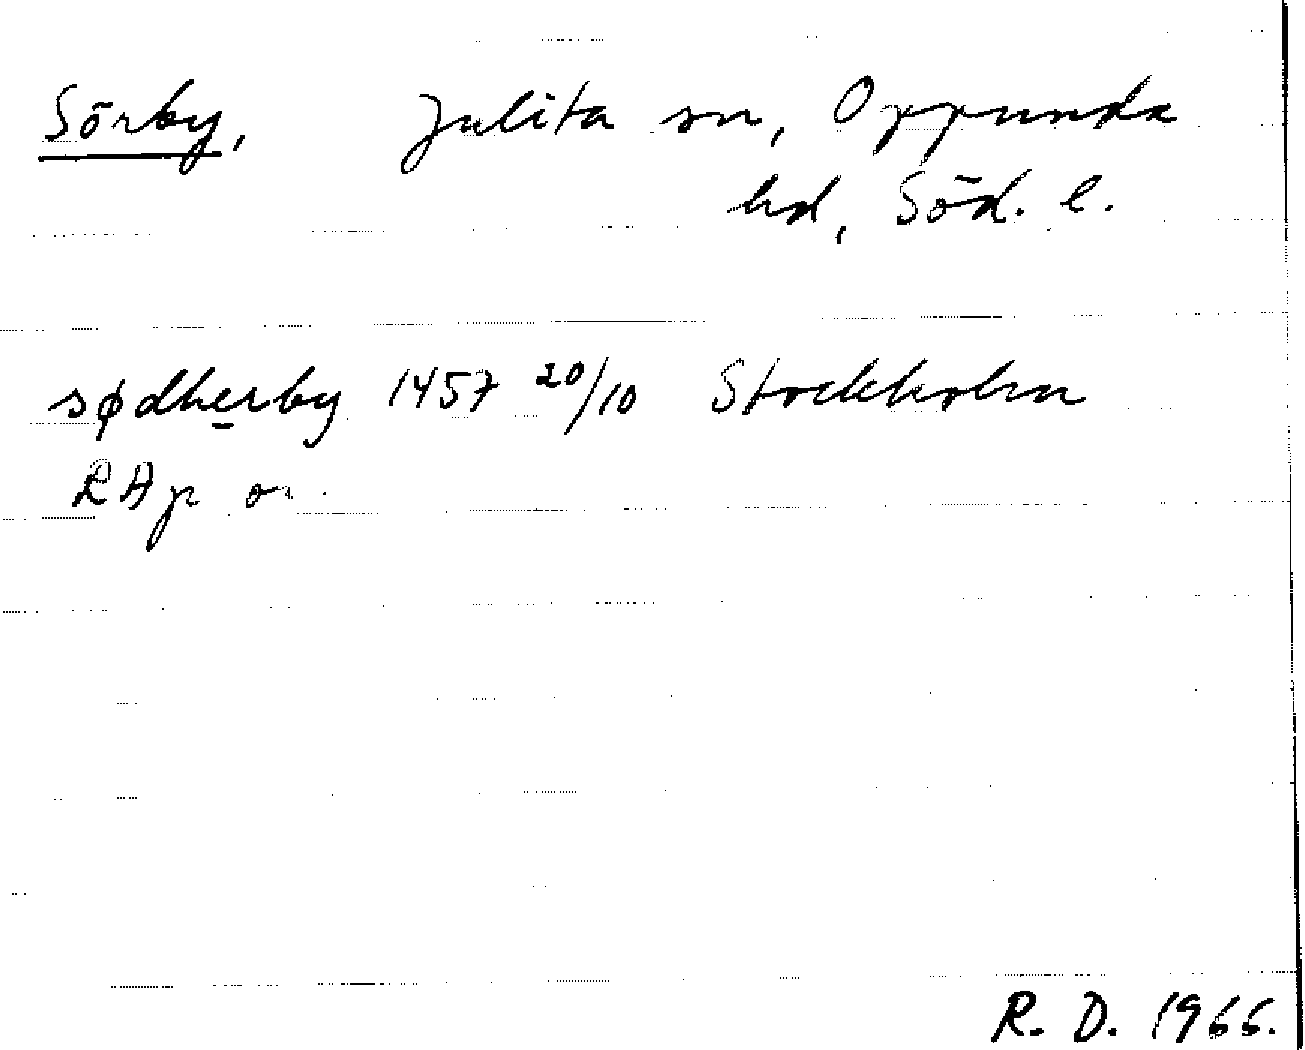 Sörby, Julita sn, Oppunda
hd, Söd. l.
sødherby 1457 20/10 Stockholm
RAp or.
R. D. 1966.